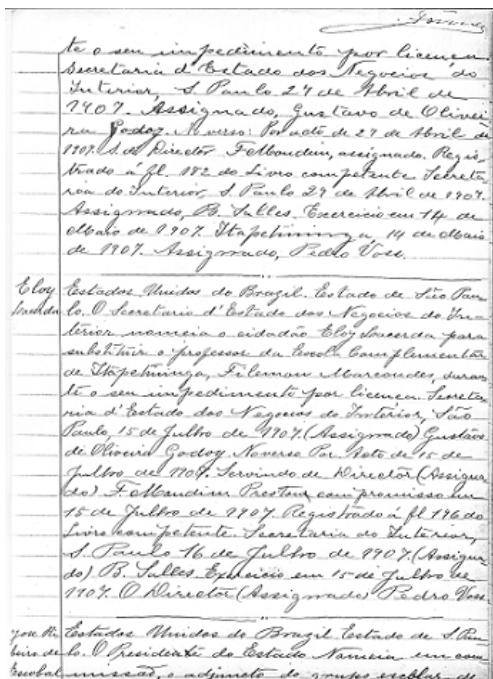 te o seu impedimento por licença.
Secretaria d'Estado dos Negocios do
Interior, S. Paulo 27 de Abril de
1907. Assignado, Gustavo de Olivei-
ra Godoy. No verso: Por acto de 27 de Abril de
1907. S. de Director F. Mondim, assignado. Regis-
trado á fl. 182 do Livro competente. Secreta-
ria do Interior, S. Paulo 29 de Abril de 1907.
Assignado, B. Salles. Exercicio em 14 de
Maio de 1907. Itapetininga 14 de Maio
de 1907. Assignado, Pedro Voss.
Eloy Lacerda
Estados Unidos do Brazil. Estado de São Pau-
lo. O Secretaria d'Estado dos Negocios do In-
terior nomeia o cidadão Eloy Lacerda para
substituir o professor da Escola Complementar
de Itapetininga, Filemon Marcondes, duran-
te o seu impedimento por licença. Secreta-
ria d'Estado dos Negocios do Interior, São
Paulo, 15 de Julho de 1907. (Assignado) Gustavo
de Oliveira Godoy. No verso Por Acto de 15 de
Julho de 1907. Servindo de Director (Assigna-
do) F. Mondim. Prestou compromisso em
15 de Julho de 1907. Registrado á fl 196 do
Livro competente. Secretaria do Interior,
S. Paulo 16 de Julho de 1907. (Assigna-
do) B. Salles. Exercicio em 15 de Julho de
1907. O Director (Assignado) Pedro Voss.
José Ri-
beiro de
Escobal
Estados Unidos do Brazil Estado de S. Pau-
lo. O Presidente do Estado Nomeia em com-
missão, o adjuncto do grupo escolar de